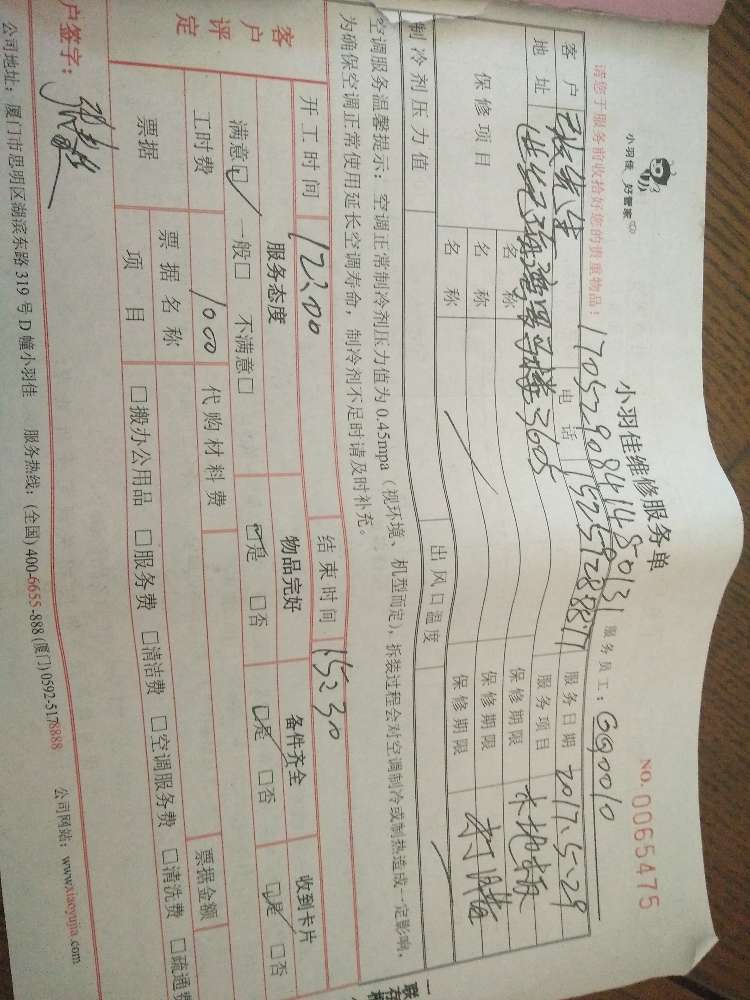 小羽佳 好管家
小羽佳维修服务单
NO.0065475
请您于服务前收拾好您的贵重物品!
170529084148 0131
服务员工: GG0010
客户 张先生 电话 服务日期 2017.5.29
地址 3605 服务项目 木地板
保修项目 名称 保修期限 打蜡
名称 保修期限
名称 保修期限
制冷剂压力值 出风口温度
空调服务温馨提示: 空调正常制冷剂压力值为 0.45mpa (视环境、机型而定), 拆装过程会对空调制冷或制热造成一定影响,
为确保空调正常使用延长空调寿命, 制冷剂不足时请及时补充。
开工时间 12:00 结束时间 15:30
客户评定 服务态度 物品完好 备件齐全 收到卡片
满意☑ 一般□ 不满意□ ☑是 □否 ☑是 □否 ☑是 □否
工时费 1000 代购材料费
票据 票据名称 票据金额
项目 □搬办公用品 □服务费 □清洁费 □空调服务费 □清洗费 □疏通费
户签字:
公司地址: 厦门市思明区湖滨东路 319 号 D 幢小羽佳 服务热线: (全国) 400-6655-888 (厦门) 0592-5178888 公司网站: www.xiaoyujia.com
一联存根